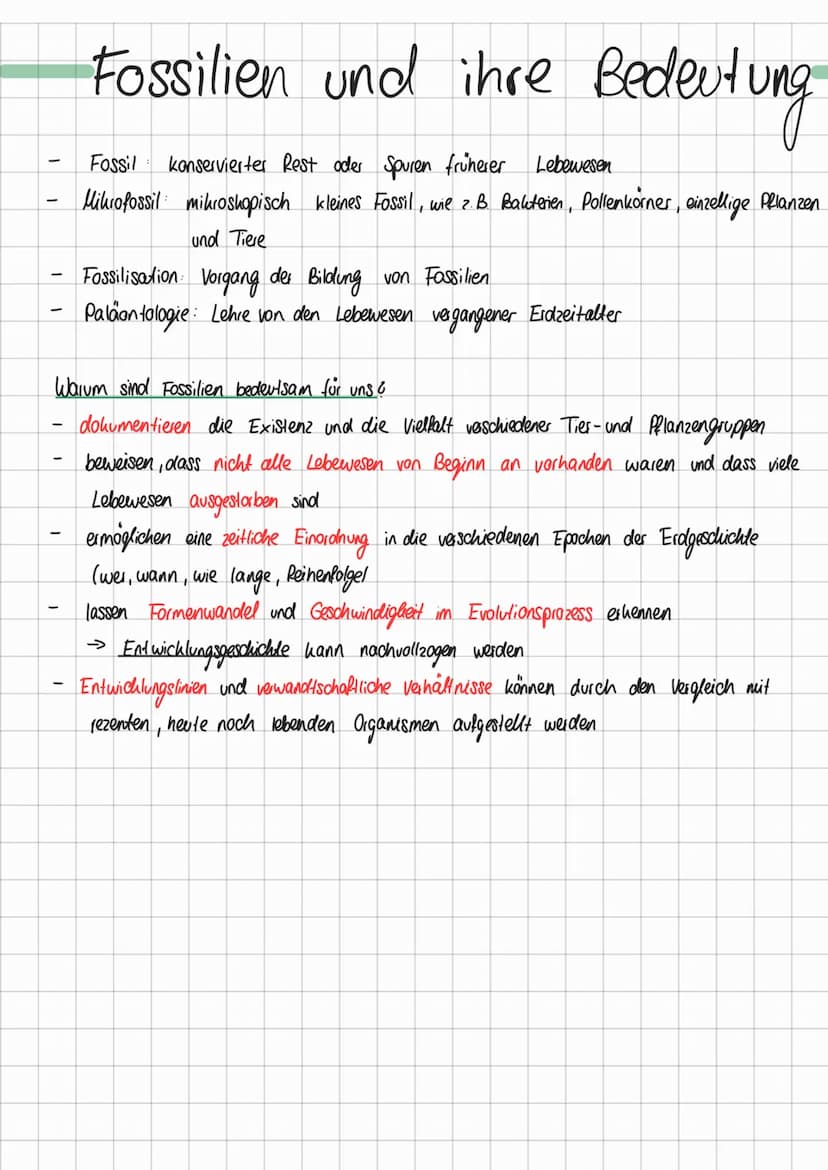 Fossilien und ihre Bedeutung
- Fossil: konservierter Rest oder Spuren früherer Lebewesen
- Mikrofossil: mikroskopisch kleines Fossil, wie z.B. Bakterien, Pollenkörner, einzellige Pflanzen
und Tiere
- Fossilisation: Vorgang der Bildung von Fossilien
- Paläontologie: Lehre von den Lebewesen vergangener Erdzeitalter
Warum sind Fossilien bedeutsam für uns?
- dokumentieren die Existenz und die Vielfalt verschiedener Tier- und Pflanzengruppen
- beweisen, dass nicht alle Lebewesen von Beginn an vorhanden waren und dass viele
Lebewesen ausgestorben sind
- ermöglichen eine zeitliche Einordnung in die verschiedenen Epochen der Erdgeschichte
(wer, wann, wie lange, Reihenfolge)
- lassen Formenwandel und Geschwindigkeit im Evolutionsprozess erkennen
→ Entwicklungsgeschichte kann nachvollzogen werden
- Entwicklungslinien und verwandtschaftliche Verhältnisse können durch den Vergleich mit
rezenten, heute noch lebenden Organismen aufgestellt werden